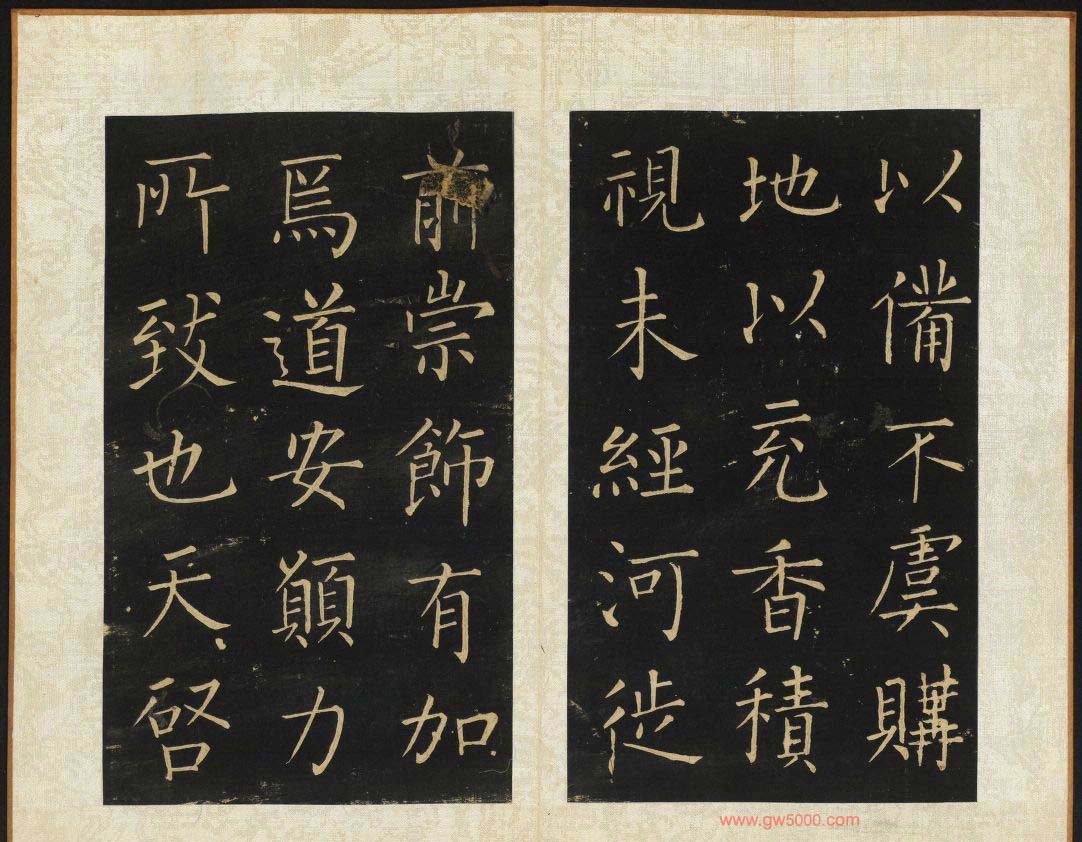 以備不虞購
地以充香積
視未經河徙
前崇飾有加
焉道安願力
所致也天啓
www.gw5000.com